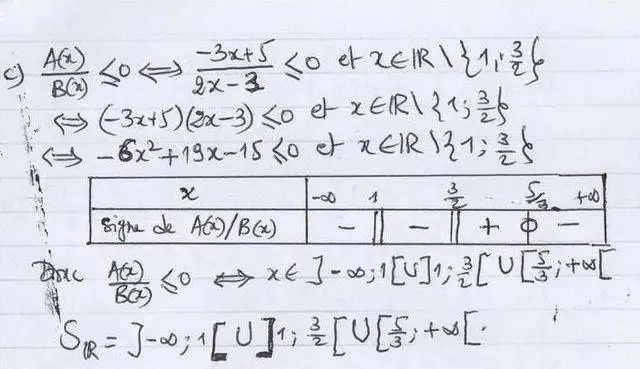 c) A(x)/B(x) ≤ 0 ⟺ (-3x+5)/(2x-3) ≤ 0 et x∈ℝ\{1; 3/2}
⟺ (-3x+5)(2x-3) ≤ 0 et x∈ℝ\{1; 3/2}
⟺ -6x²+19x-15 ≤ 0 et x∈ℝ\{1; 3/2}
x | -∞ 1 3/2 5/3 +∞
Signe de A(x)/B(x) | - || - || + 0 -
Donc A(x)/B(x) ≤ 0 ⟺ x∈ ]-∞; 1[ U ]1; 3/2[ U [5/3; +∞[
S_ℝ = ]-∞; 1[ U ]1; 3/2[ U [5/3; +∞[.